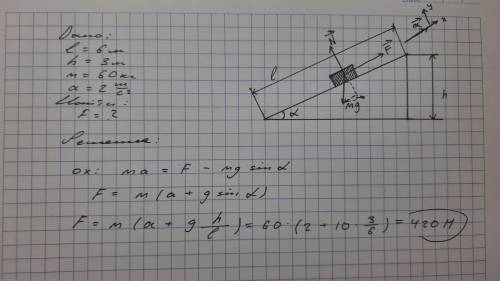 Дано:
l = 6 м
h = 3 м
m = 60 кг
a = 2 м/с²
Найти:
F = ?
Решение:
ox: ma = F - mg sin α
F = m (a + g sin α)
F = m (a + g h/l) = 60 · (2 + 10 · 3/6) = 420 Н
l
α
N
F
mg
h
a
y
x